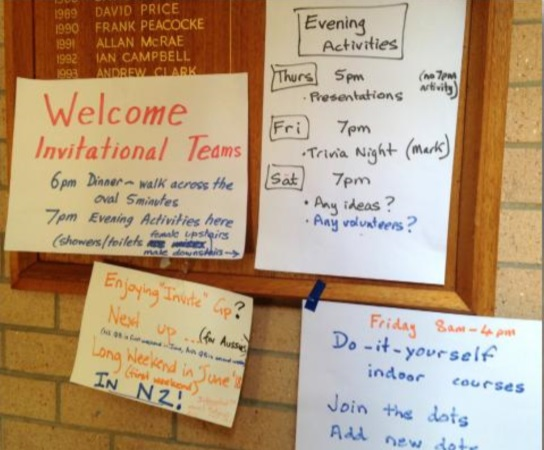 1989 DAVID PRICE
1990 FRANK PEACOCKE
1991 ALLAN McRAE
1992 IAN CAMPBELL
1993 ANDREW CLARK
Welcome
Invitational Teams
6pm Dinner - walk across the
oval 5minutes
7pm Evening Activities here
(showers/toilets female upstairs
male downstairs →
Evening
Activities
Thurs 5pm (no 7pm
activity)
• Presentations
Fri 7pm
• Trivia Night (Mark)
Sat 7pm
• Any ideas?
• Any volunteers?
Enjoying "Invite" Gp?
Next up ... (for Aussies)
Long Weekend in "June"
(first weekend)
IN NZ!
Friday 8am-4pm
Do-it-yourself
indoor courses
Join the dots
Add new dots